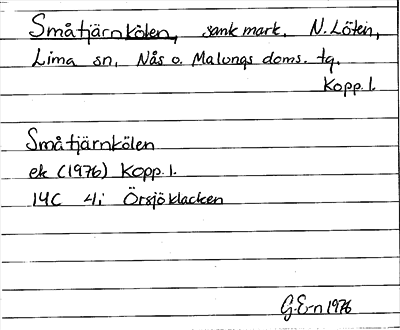 Småtjärnkölen, sank mark, N. Löten,
Lima sn, Nås o. Malungs doms. tg.
Kopp. l.
Småtjärnkölen
ek (1976) Kopp. l.
14C 4i Örsjöklacken
G.E-n 1976